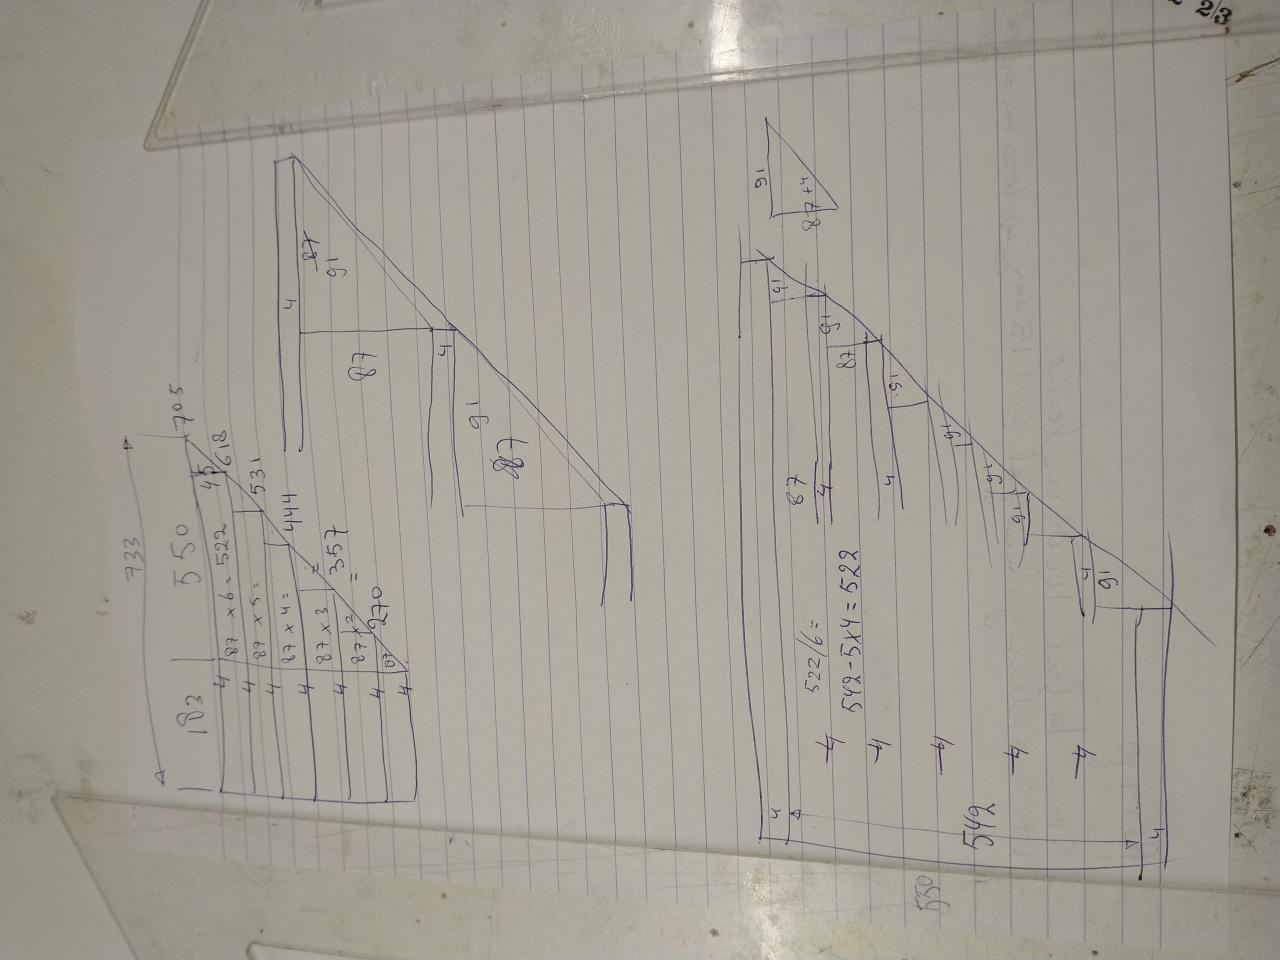 2/3
733
183 550 705
4 87 x 6 = 522 45 618
4 87 x 5 = 531
4 87 x 4 = 444
4 87 x 3 = 357
4 87 x 2 = 270
4 87
4
4
87
91
87
4
91
87
91
87 + 4
4
91
91
87
87
4
91
4
91
91
91
4
91
522/6 =
542 - 5x4 = 522
4
4
4
4
4
4
542
4
550